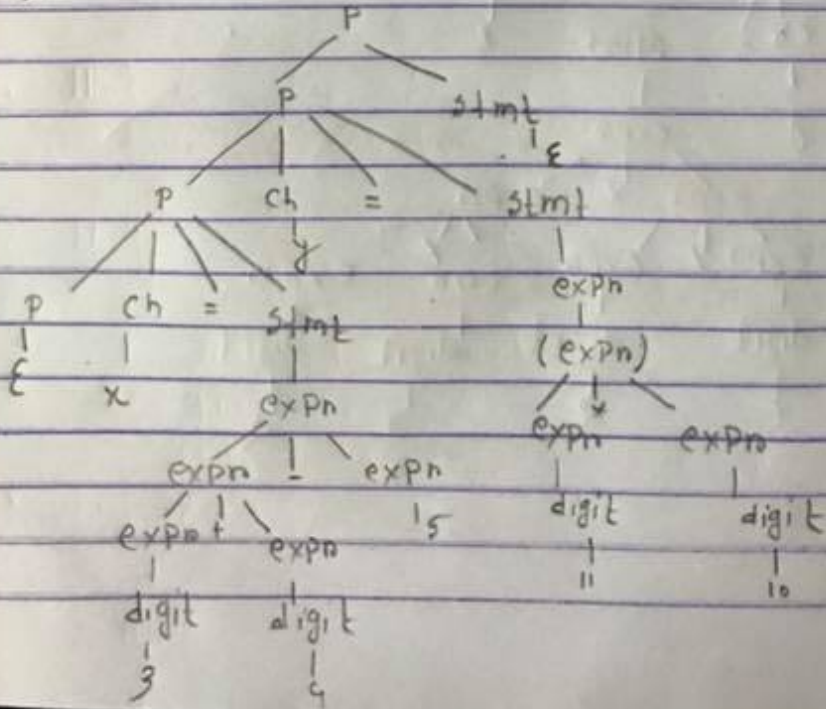 P
P stmt
ε
P Ch = stmt
y
expn
P Ch = stmt
(expn)
ε x
expn
*
expn expn
expn - expn
digit digit
5
expn + expn
11 10
digit digit
3 4